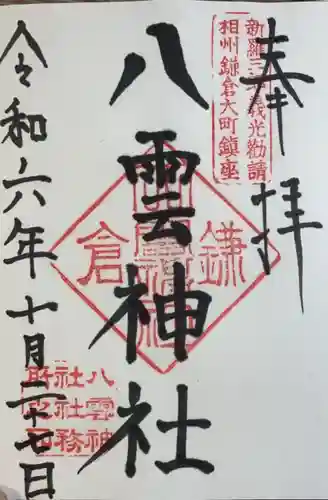 奉拝
新羅三郎義光勧請
相州鎌倉大町鎮座
八雲神社
鎌倉
八雲神
社社務
令和六年十月二十七日